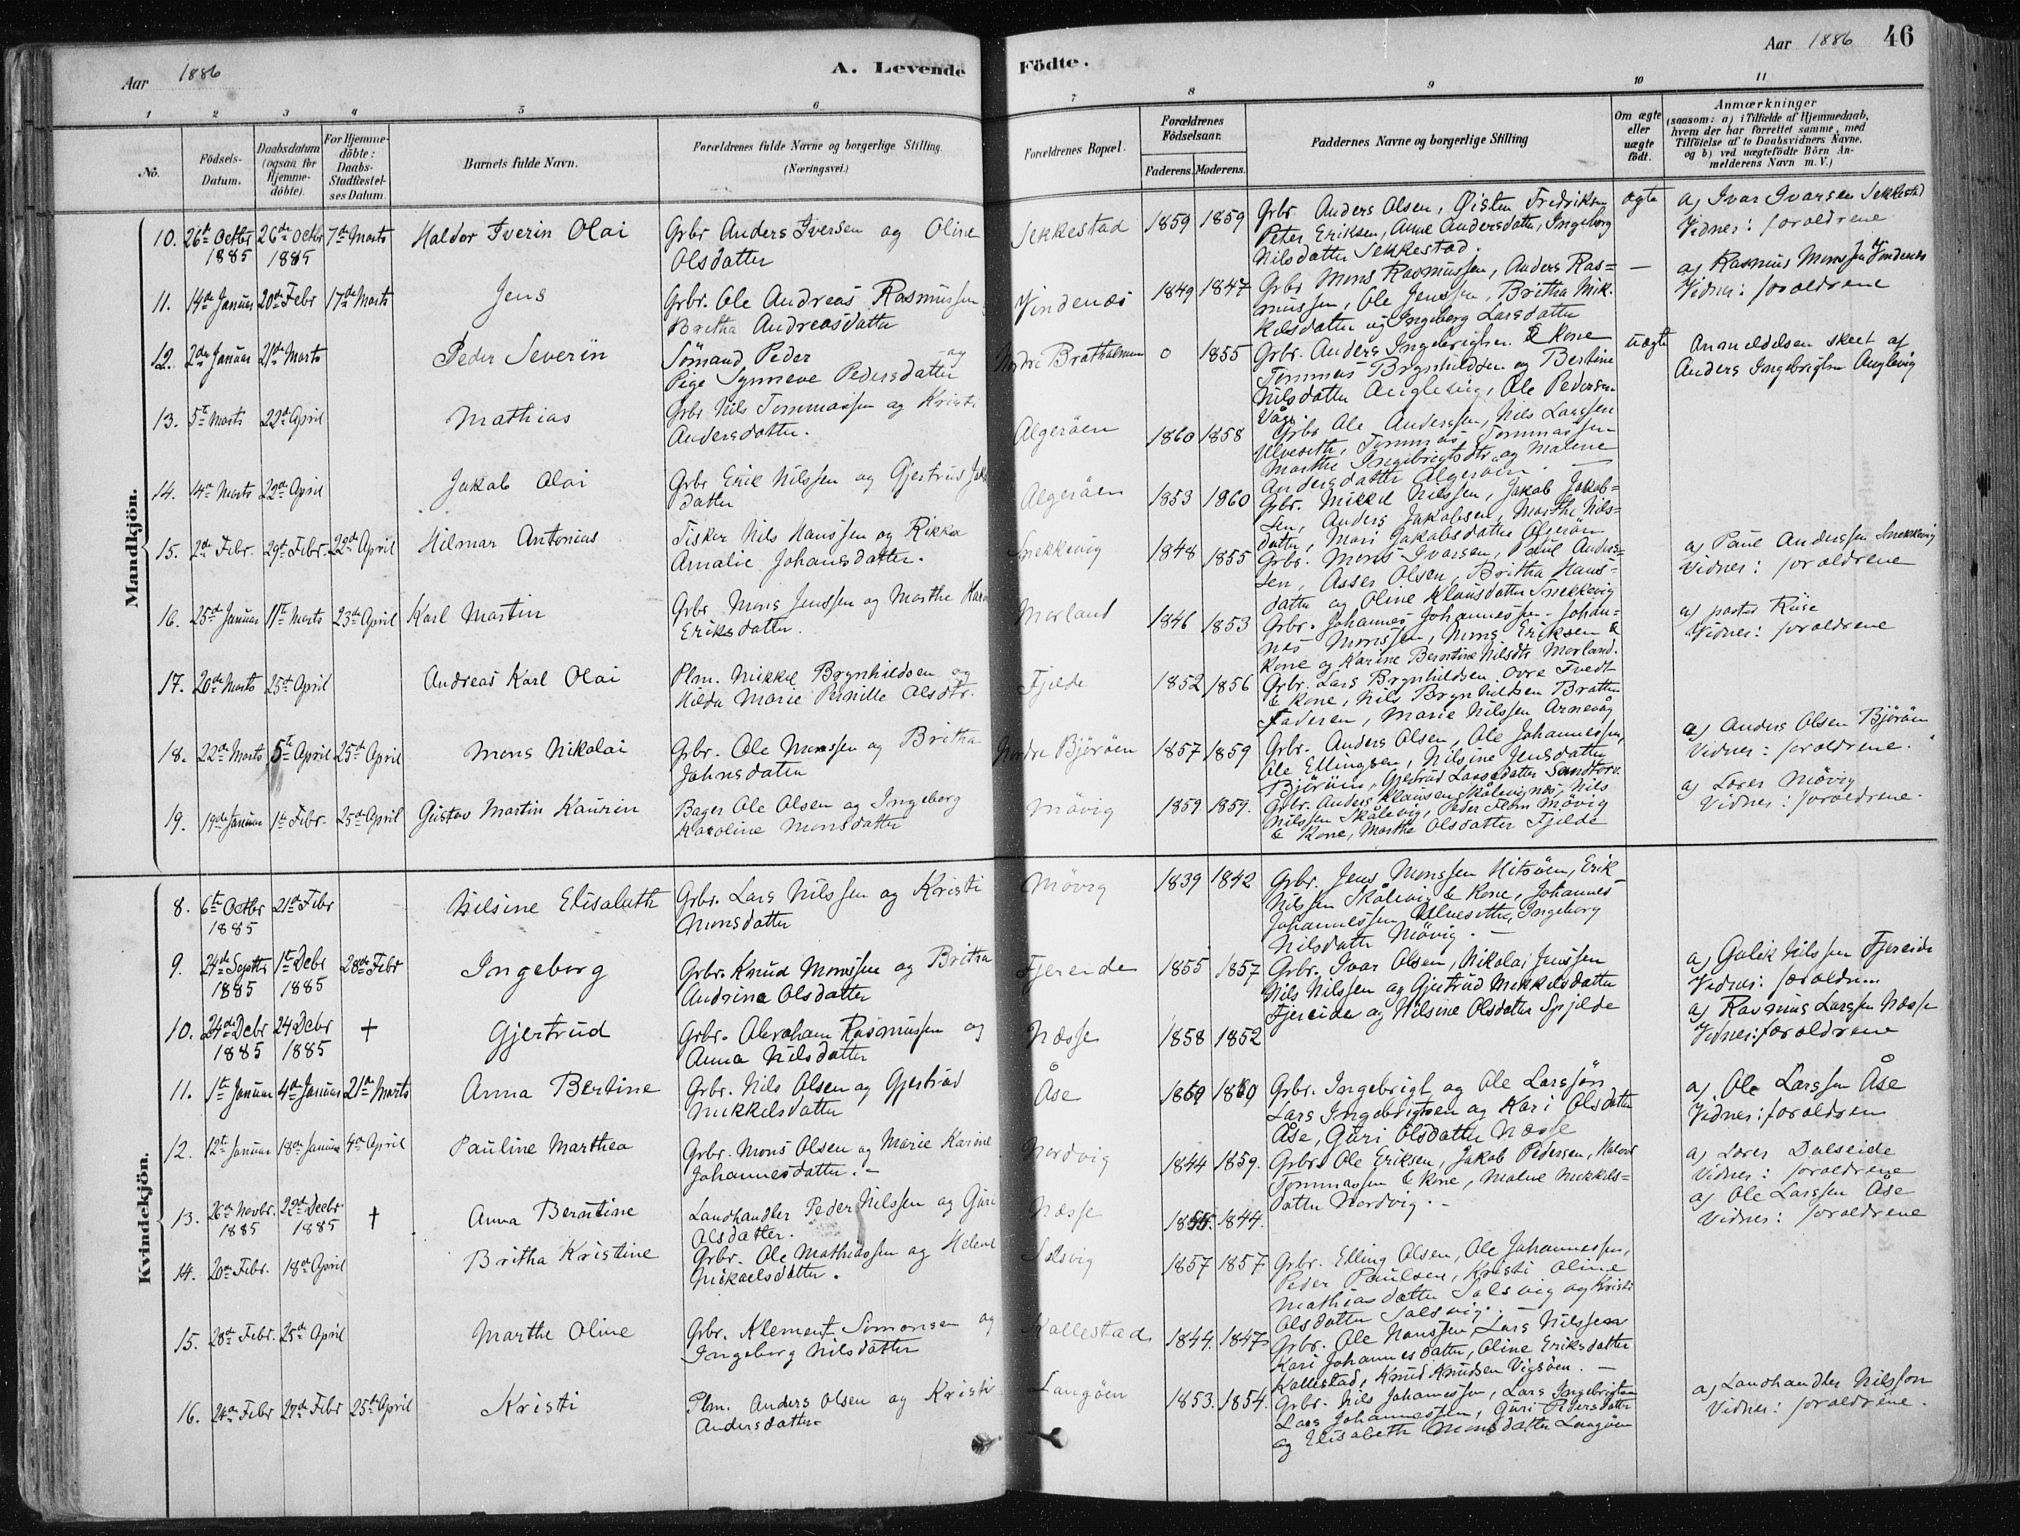 Aar 1886
A. Levende Födte.
Aar 1886 46
1 2 3 4 5 6 7 8 9 10 11
No.
Födsels-Datum.
Daabsdatum (ogsaa for Hjemme-döbte).
For Hjemme-döbte: Daabs-Stadfæstel-ses Datum
Barnets fulde Navn.
Forældrenes fulde Navne og borgerlige Stilling (Næringsvei.)
Forældrenes Bopæl.
Forældrenes Födselsaar.
Faderens. Moderens.
Faddernes Navne og borgerlige Stilling
Om ægte eller uægte födt.
Anmærkninger
(saasom: a) i Tilfælde af Hjemmedaab,
hvem der har forrettet samme, med
Tilföielse af to Daabsvidners Navne,
og b) ved uægtefödte Börn An-
melderens Navn m. V.)
Mandkjön.
10. 26t Octbr 1885 26de Octbr 1885 7de Marts Haldor Iverin Olai
Grbr Anders Iversen og Oline
Olsdatter
Sekkestad 1859 1859
Grbr Anders Olsen, Östen Fredriksen
Peter Eriksen, Anne Andersdatter, Ingeborg
Nilsdatter Sekkestad.
ægte
a) Ivar Ivarsen Sekkestad
Vidner: forældrene
11. 14de Januar 20de Febr 17de Marts Jens
Grbr. Ole Andreas Rasmussen
Britha Andreasdatter
Vindenæs 1849 1847
Grbr Mons Rasmussen, Anders Ras=
mussen, Ole Jenssen, Britha Mik-
kelsdatter og Ingeborg Larsdatter
—
a) Rasmus Monssen Vindenes
Vidner: forældrene
12. 2den Januar 21de Marts Peder Severin
Sömand Peder og
Pige Synneve Pedersdatter
Nordre Bratholmen 0 1855
Grbr. Anders Ingebrigtsen & Kone
Tommas Brynhildsen og Bertine
Nilsdatter Anglevig, Ole Pedersen
Våge.
uægte
Anmeldelsen skeet af
Anders Ingebrigtsen Anglevig
13. 5te Marts 22de April Mathias
Grbr Nils Tommassen og Kristi
Andersdatter.
Algeröen 1860 1858
Grbr Ole Anderssen, Nils Larssen
Ulveseth, Tommas Tommassen
Marthe Ingebrigtsdtr og Malene
Andersdatter Algeröen. —
14. 14de Marts 22de April Jakob Olai
Grbr Erik Nilssen og Gjertrud
datter
Algeröen 1853 1860
Grbr. Mikkel Nilssen, Jakob Jakob-
sen, Anders Jakobsen, Marthe Nils-
datter, Mari Jakobsdatter Algeröen
15. 2de Febr. 29de Febr. 22de April Hilmar Antonius
Fisker Nils Hanssen og Rikka
Amalie Johansdatter.
Snekkevig 1848 1855
Grbr. Mons Ivarsen, Paul Anders-
sen, Asser Olsen, Britha Hans-
datter og Oline Klausdatter Snekkevig
a) Paul Anderssen Snekkevig
Vidner: forældrene
16. 25de Januar 11te Marts 23de April Karl Martin
Grbr Mons Jenssen og Marthe
Eriksdatter.
Morland 1846 1853
Grbr. Johannes Johannessen, Johan-
nes Monssen, Mons Eriksen &
Kone og Karine Berntine Nilsdtr Morland.
a) pastor Rüse
Vidner: forældrene
17. 20de Marts 25de April Andreas Karl Olai
Plm. Mikkel Brynhildsen og
Hilda Marie Pernille Olsdtr.
Fjelde 1852 1856
Grbr. Lars Brynhildsen Övre Tvedt
& Kone, Nils Brynhildsen Bratten
Faderen, Marie Nilssen Arnevåg
18. 22de Marts 5te April 25de April Mons Nikolai
Grbr. Ole Monssen og Britha
Jahnsdatter
Nordre Björöen 1857 1859
Grbr. Anders Olsen, Ole Johannessen,
Ole Ellingsen, Nilsine Jensdatter
Björöen, Gjertrud Larsdatter Sandtorv.
a) Anders Olsen Björöen
Vidner: forældrene.
19. 19de Januar 1te Febr. 25de April Gustav Martin Kaurin
Bager Ole Olsen og Ingeborg
Karoline Monsdatter
Mövig 1859 1859.
Grbr. Anders Klausen Skålevignes, Nils
Nilssen Skålevig, Peder Flem Mövig
& Kone, Marthe Olsdatter Fjelde
a) Lærer Mövig
Vidner: forældrene.
Kvindekjön.
8. 6te Octbr 1885 21de Febr Nilsine Elisabeth
Grbr. Lars Nilssen og Kristi
Monsdatter
Mövig 1839 1842
Grbr. Jens Monssen Hitsöen, Erik
Nilssen Skålevig & Kone, Johannes
Johannessen Ulvesether, Ingeborg
Nilsdatter Mövig. —
9. 24de Septbr 1885 1te Debr 1885 28de Febr Ingeborg
Grbr. Knud Monssen og Britha
Andrine Olsdatter
Fjereide 1855 1857
Grbr. Ivar Olsen, Nikolai Jenssen
Nils Nilssen og Gjertrud Mikkelsdatter
Fjereide og Nilsine Olsdatter Spjelde
a) Gulek Nilssen Fjereide
Vidner: forældrene
10. 24de Debr 1885 24 Debr 1885 † Gjertrud
Grbr. Abraham Rasmussen og
Anna Nilsdatter
Næsse 1858 1852
a) Rasmus Larssen Næsse
Vidner: forældrene
11. 1te Januar 4de Januar 21de Marts Anna Bertine
Grbr. Nils Olsen og Gjertrud
Mikkelsdatter
Åse 1860 1860
Grbr. Ingebrigt og Ole Larssön
Lars Ingebrigtsen og Kari Olsdatter
Åse, Guri Olsdatter Næsse
a) Ole Larssen Åse
Vidner: forældren
12. 12te Januar 18de Januar 4de April Pauline Marthea
Grbr. Mons Olsen og Marie Karine
Johannesdatter. —
Nordvig 1844 1859.
Grbr. Ole Eriksen, Jakob Pedersen, Halvor
Tommassen & Kone, Malene Mikkels-
datter Nordvig. —
a) Lærer Dalseide
Vidner: forældrene
13. 26de Novbr. 1885 22de Decbr 1885 † Anna Berntine
Landhandler Peder Nilssen og Guri
Olsdatter.
Næsse 1854. 1844.
a) Ole Larssen Åse
Vidner: forældrene
14. 20de Febr. 18de April Britha Kristine
Grbr. Ole Mathiassen og Helene
Mikaelsdatter.
Solsvig 1857 1857
Grbr. Elling Olsen, Ole Johannessen,
Peder Paulsen, Kristi Oline
Mathiasdatter Solsvig og Kristi
Olsdatter Solsvig. —
15. 28de Febr. 25de April Marthe Oline
Grbr. Klement Simonsen og
Ingeborg Nilsdatter
Kallestad 1844. 1847
Grbr. Ole Hanssen, Lars Nilssen
Kari Johannesdatter, Oline Eriksdatter
Kallestad, Knud Knudsen Vigsöen. —
16. 24de Febr 27de Febr 25de April Kristi
Plm. Anders Olsen og Kristi
Andersdatter
Langöen 1853. 1854.
Grbr. Nils Johannessen, Lars Ingebrigtsen
Lars Johannessen, Guri Pedersdatter
og Elisabeth Monsdatter Langöen
a) Landhandler Nilssön
Vidner: forældrene.